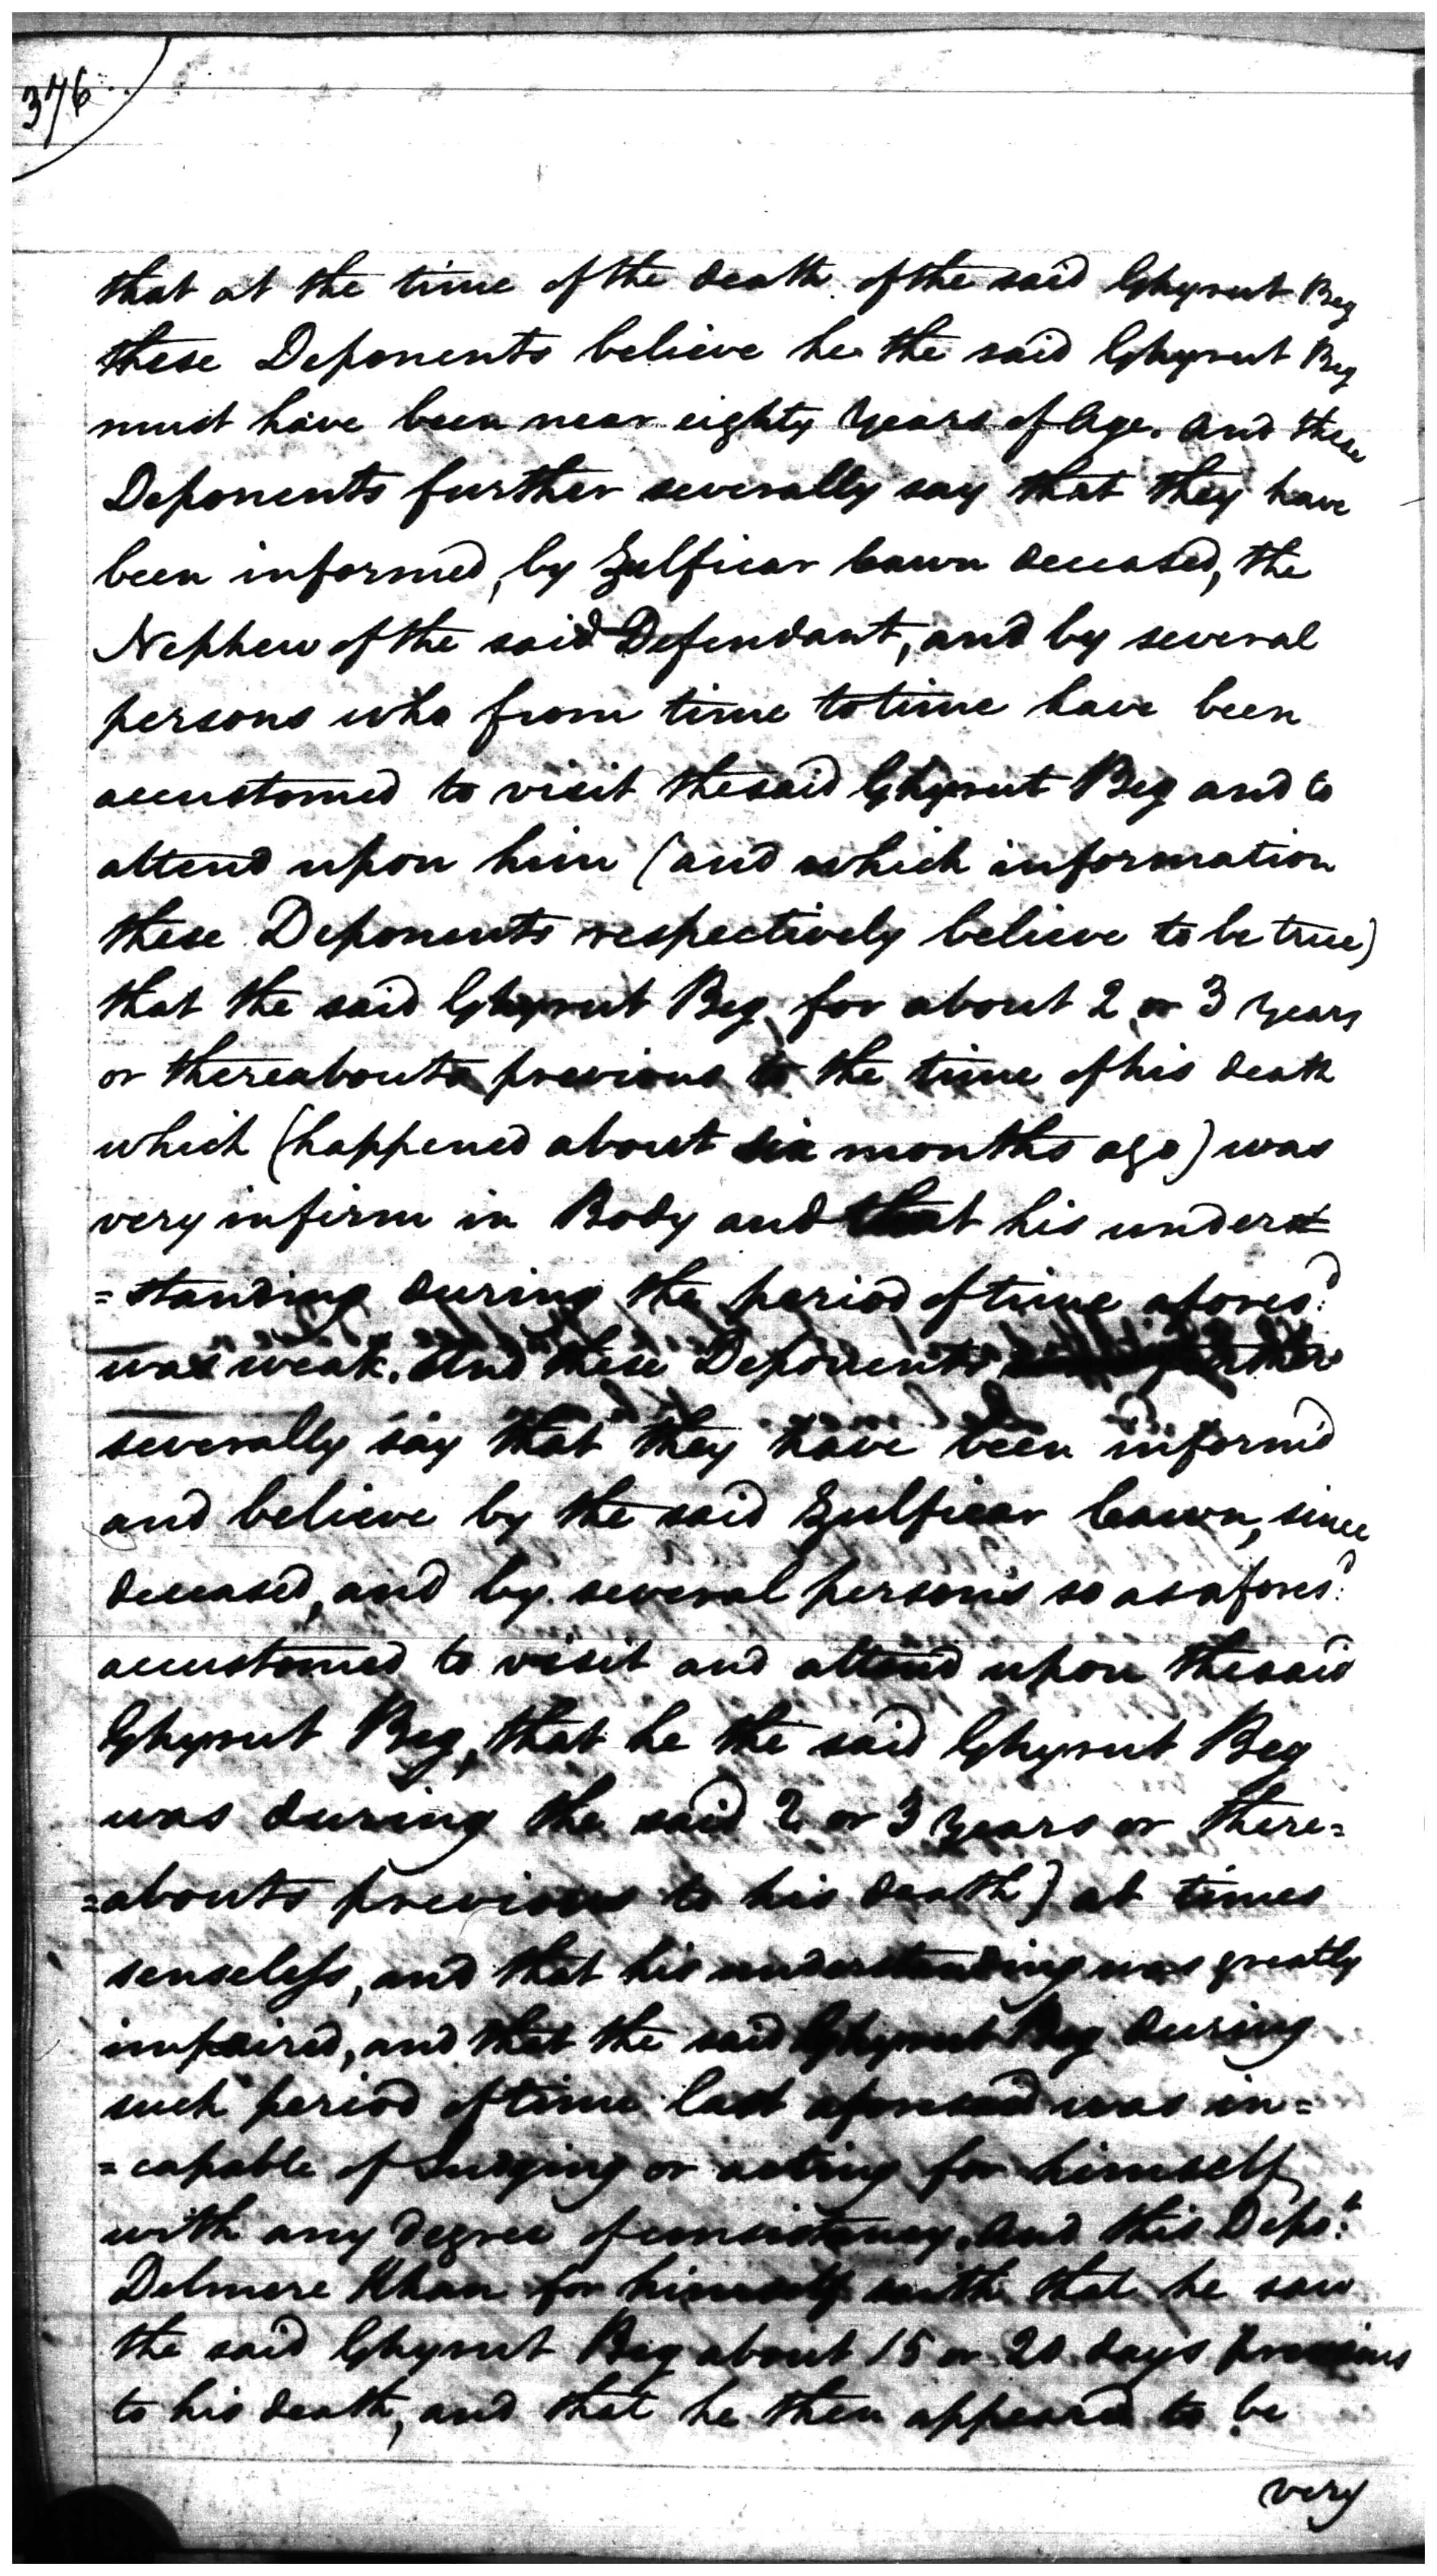 376
that at the time of the death of the said Ghyrut Beg
these Deponents believe he the said Ghyrut Beg
must have been near eighty Years of Age. And these
Deponents further severally say that they have
been informed, by Zulficar Cawn deceased, the
Nephew of the said Defendant, and by several
persons who from time to time have been
accustomed to visit the said Ghyrut Beg and to
attend upon him (and which information
these Deponents respectively believe to be true)
that the said Ghyrut Beg for about 2 or 3 Years
or thereabouts previous to the time of his death
which (happened about six months ago) was
very infirm in Body and that his under
=standing during the period of time afores:d
was weak. And these Deponents further
severally say that they have been inform'd
and believe by the said Zulficar Cawn, since
deceased, and by several persons so as afores:d
accustomed to visit and attend upon the said
Ghyrut Beg, that he the said Ghyrut Beg
was during the said 2 or 3 Years or there=
=abouts previous to his death) at times
senseless, and that his understanding was greatly
impaired, and that the said Ghyrut Beg during
such period of time last aforesaid was in=
=capable of Judging or acting for himself
with any degree of consistency. And this Depo:t
Delmere Khan for himself saith that he saw
the said Ghyrut Beg about 15 or 20 days previous
to his death, and that he then appeared to be
very